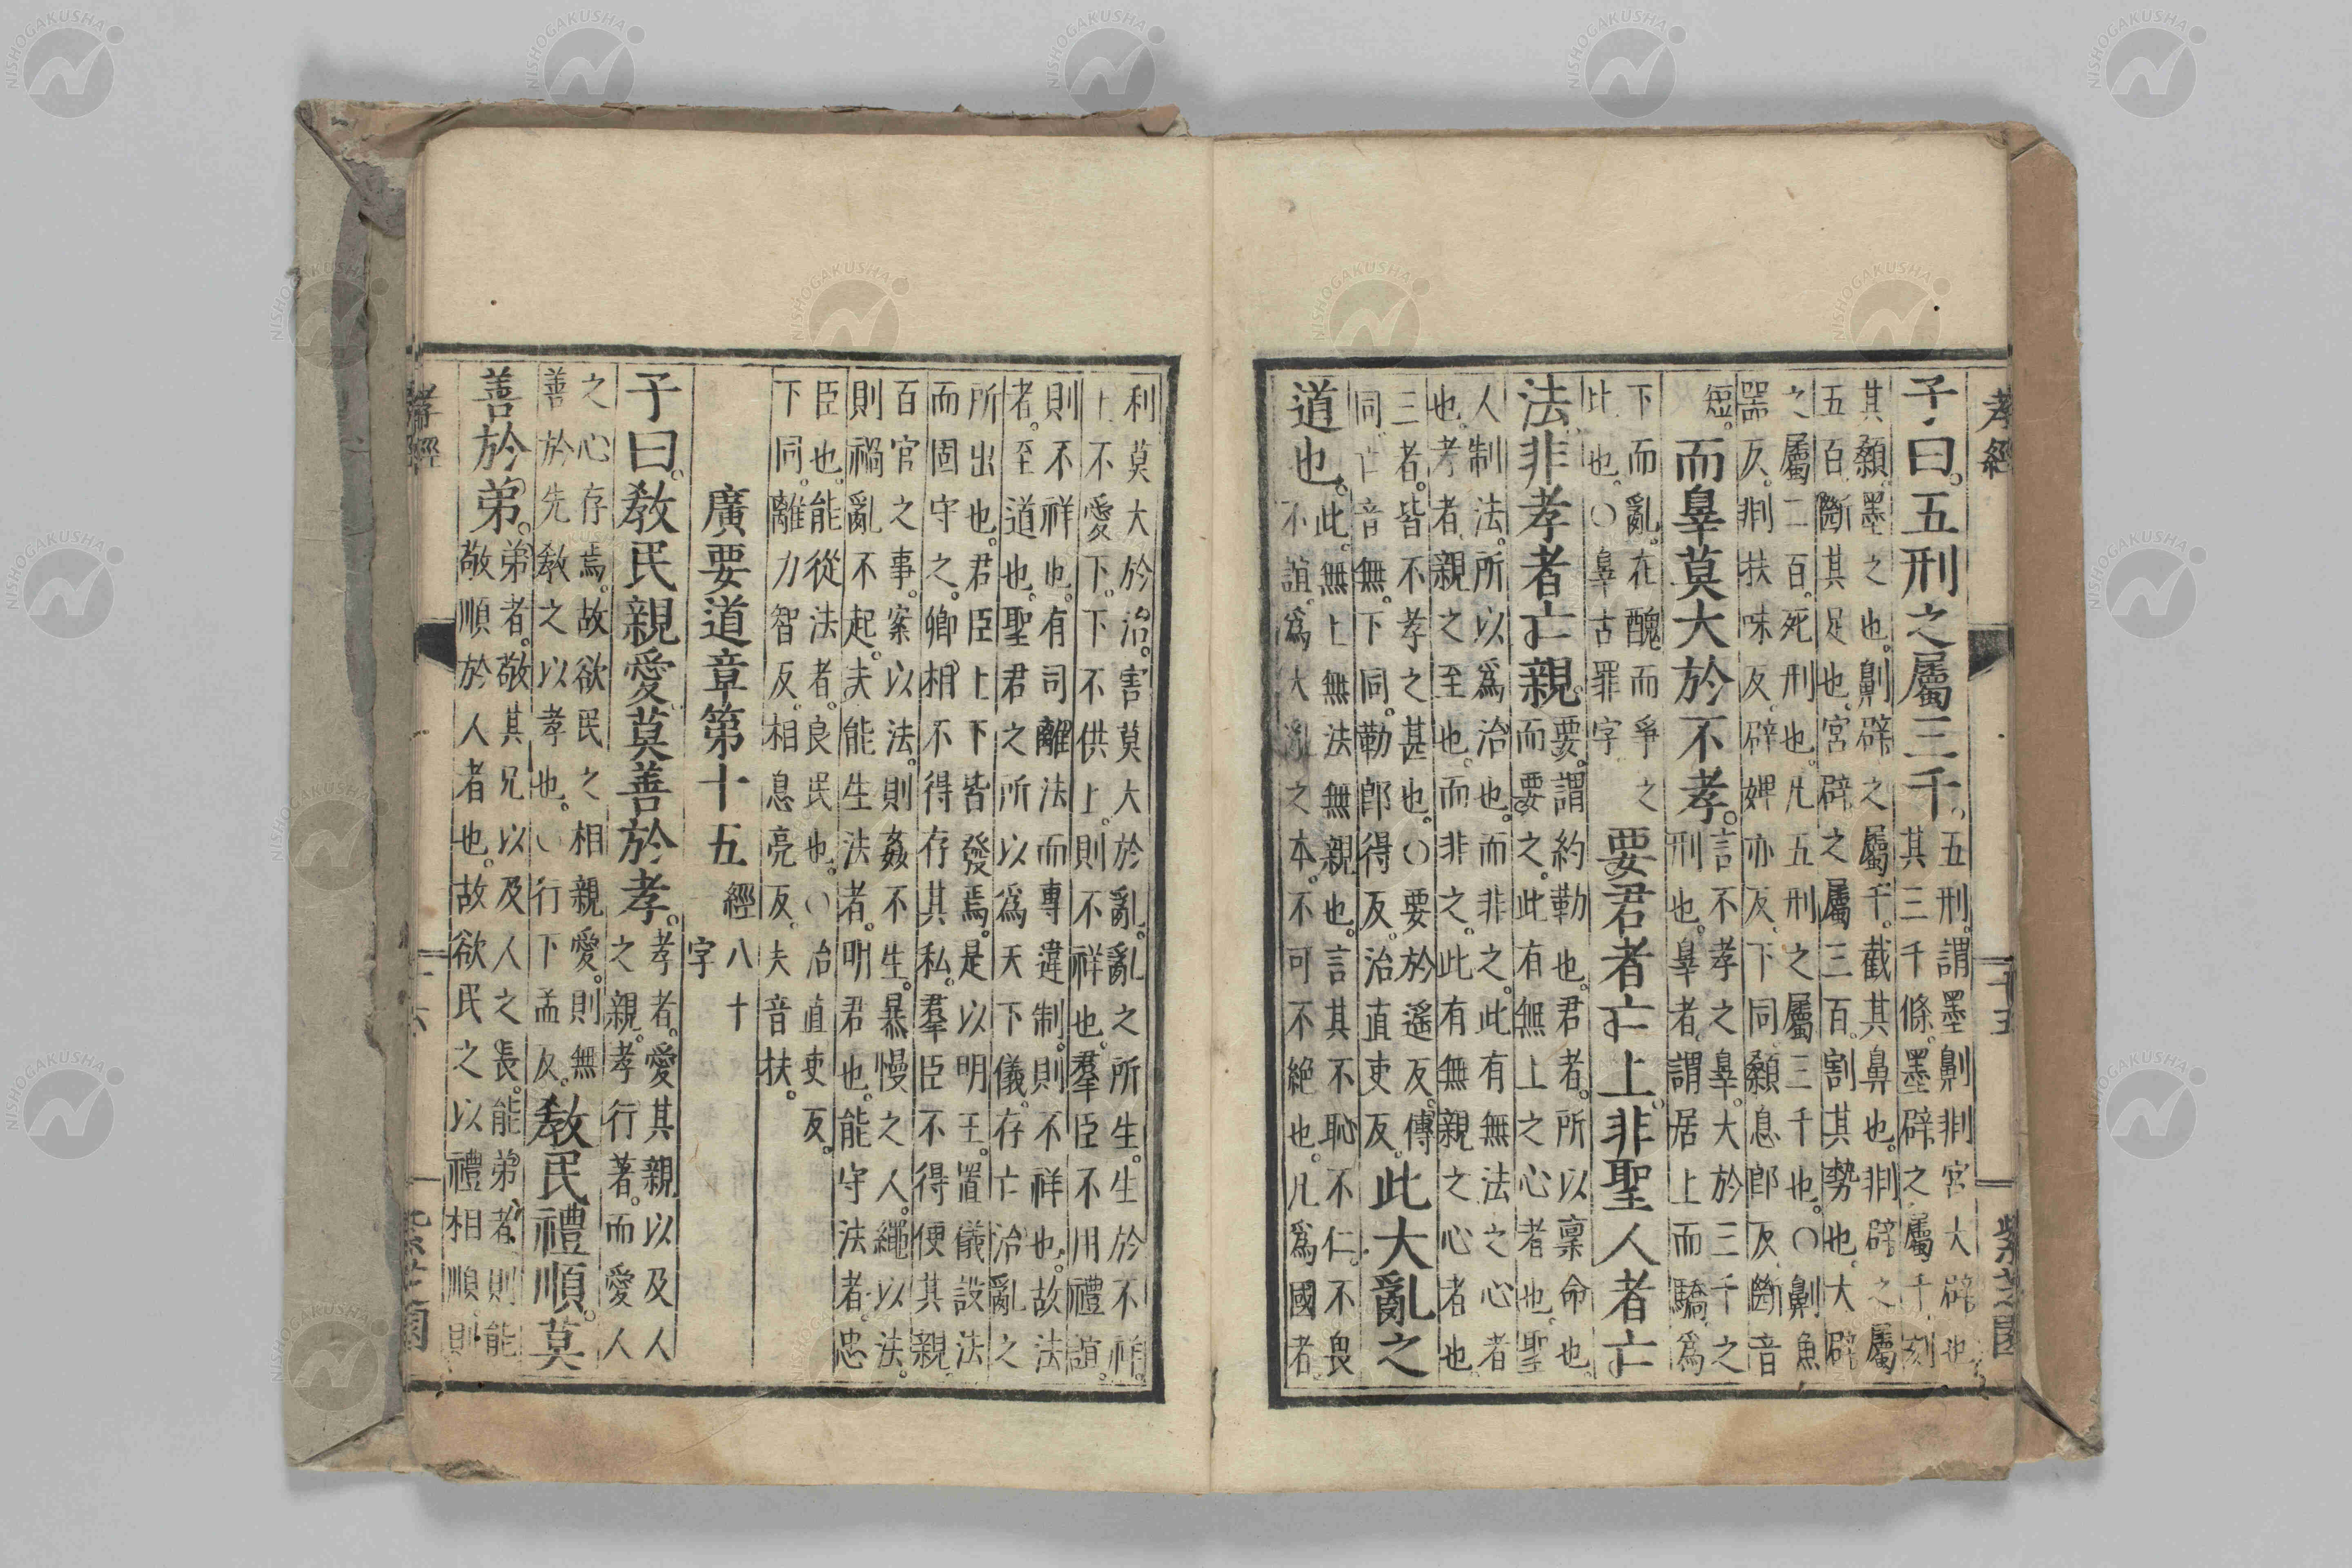 孝經 十五 紫芝園
子曰。五刑之屬三千。
五刑。謂墨劓剕宮大辟也
其三千條。墨辟之屬千。刻
其顙。墨之也。劓辟之屬千。截其鼻也。剕辟之屬
五百。斷其足也。宮辟之屬三百。割其勢也。大辟
之屬二百。死刑也。凡五刑之屬三千也。〇劓魚
器反。剕扶味反。辟婢亦反。下同。顙息郎反。斷音
短。
而辠莫大於不孝。
言不孝之辠。大於三千之
刑也。辠者。謂居上而驕。爲
下而亂。在醜而爭之
此也。〇辠古罪字
要君者亡上。非聖人者亡
法。非孝者亡親。
要。謂約勒也。君者。所以稟命也
而要之。此有無上之心者也。聖
人制法。所以爲治也。而非之。此有無法之心者
也。孝者。親之至也。而非之。此有無親之心者也
三者。皆不孝之甚也。〇要於遙反。傳
同。亡音無。下同。勒郎得反。治直吏反。
此大亂之
道也。
此。無上無法無親也。言其不恥不仁。不畏
不誼。爲大亂之本。不可不絕也。凡爲國者。
利莫大於治。害莫大於亂。亂之所生。生於不祥。
上不愛下。下不供上。則不祥也。羣臣不用禮誼。
則不祥也。有司離法而專違制。則不祥也。故法
者。至道也。聖君之所以爲天下儀。存亡治亂之
所出也。君臣上下皆發焉。是以明王。置儀設法
而固守之。卿相不得存其私。羣臣不得便其親。
百官之事。案以法。則姦不生。暴慢之人。繩以法。
則禍亂不起。夫能生法者。明君也。能守法者。忠
臣也。能從法者。良民也。〇治直吏反。
下同。離力智反。相息亮反。夫音扶。
廣要道章第十五
經八十
字
子曰。教民親愛。莫善於孝。
孝者。愛其親以及人
之親。孝行著。而愛人
之心存焉。故欲民之相親愛。則無
善於先教之以孝也。〇行下孟反。
教民禮順。莫
善於弟。
弟者。敬其兄以及人之長。能弟者。則能
敬順於人者也。故欲民之以禮相順。則
孝經 十六 紫芝園